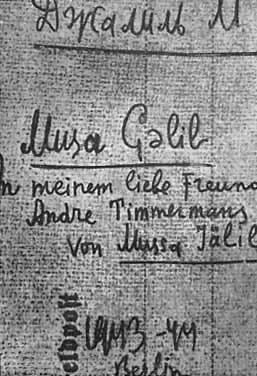 Джалиль М
Musa Gəlil
n meinem liebe Freund
Andre Timmermans
von Mussa Jälil
eldpost
1943-44
Berlin